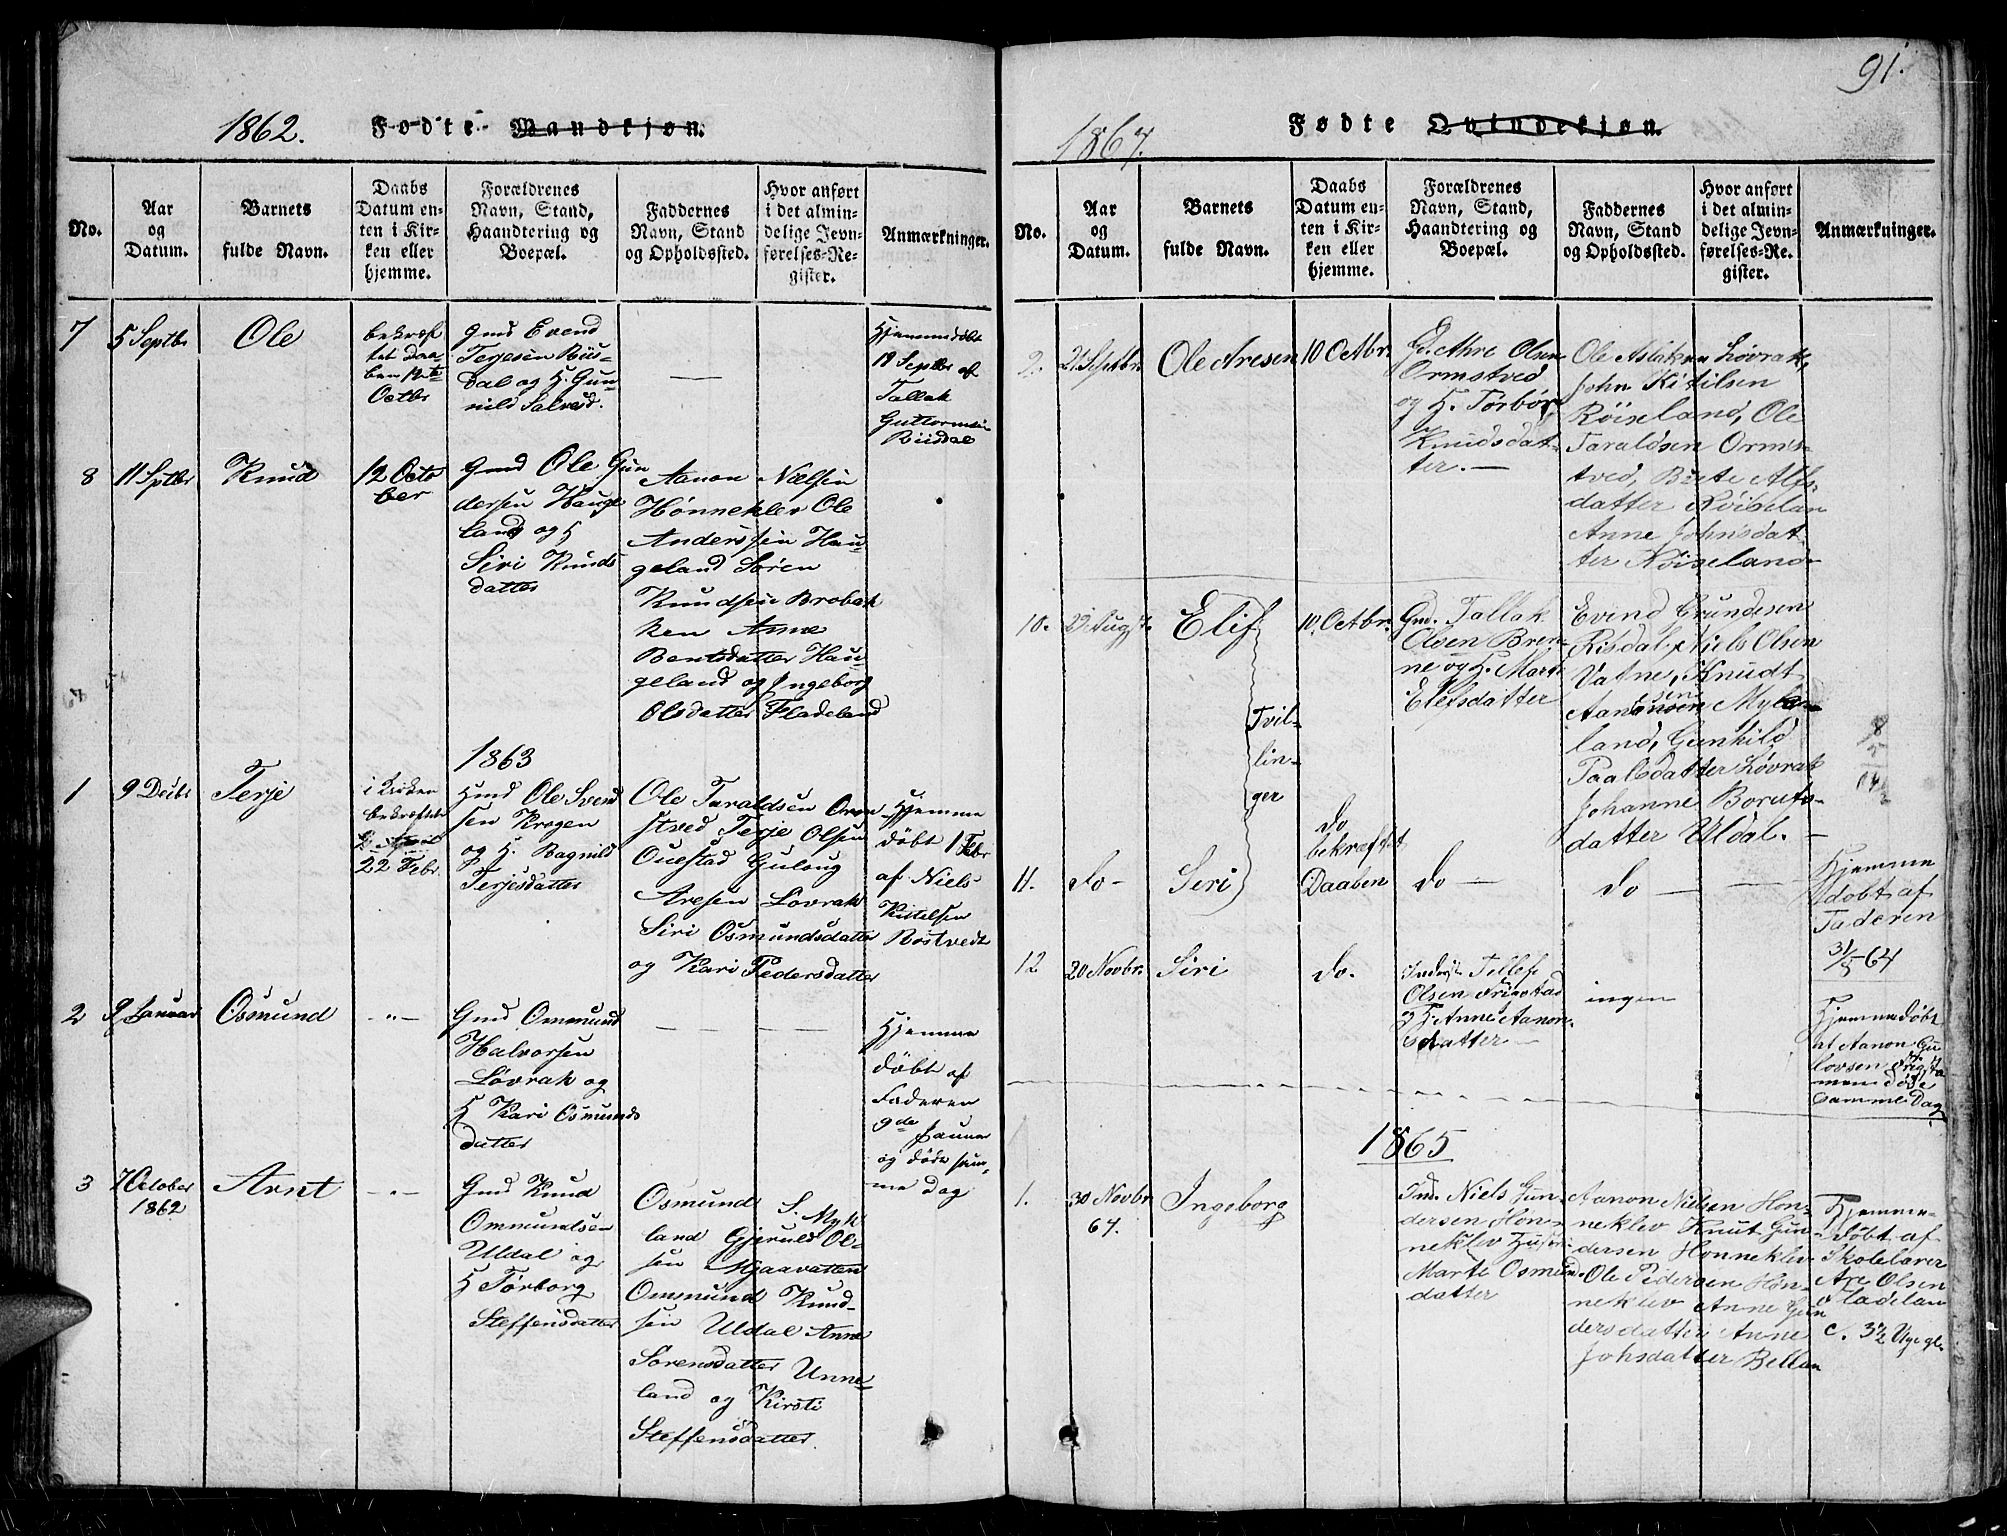 1862. Fødte Mandkjøn.
No.
Aar
og
Datum.
Barnets
fulde Navn.
Daabs
Datum en-
ten i Kir-
ken eller
hjemme.
Forældrenes
Navn, Stand,
Haandtering og
Boepæl.
Faddernes
Navn, Stand
og Opholdssted.
Hvor anført
i det almin-
delige Jevn-
førelses-Re-
gister.
Anmærkninger.
7
5 Septbr
Ole
bekræf
tet daa-
ben 12te
Octbr
Gmd Evend
Terjesen Riis-
dal og H. Gun-
nild Salvesd.
Hjemmedøbt
18 Septbr af
Tallak
Guttormsen
Riisdal
8
11 Sptbr
Knud
12 Octo
ber
Gmd Ole Gun
dersen Hauge
land og H
Siri Knuds
datter
Aanon Nælsen
Hønneklev Ole
Anderssen Hau-
geland Søren
Knudsen Brobak
ken Anne
Bentsdatter Hau-
geland og Ingeborg
Olsdatter Fladeland
1863
1
9 Decbr
Terje
i Kirken
bekræftet
22 Febr.
Hmd Ole Svend
sen Krogen
og H. Ragnild
Terjesdatter
Ole Taraldsen Orm
stved Terje Olsen
Ouestad Guloug
Aresen Lovrak
Siri Osmundsdatter
og Kari Pedersdatter
Hjemme
døbt 1 Febr
af Niels
Kittelsen
Rostvedt
2
9 Januar
Osmund
- " -
Gmd Ommund
Halvorsen
Løvrak og
H Kari Osmunds
datter
Hjemme
døbt af
Faderen
9de Januar
og døde sam-
me dag
3
7 October
1862
Arnt
- " -
Gmd Knud
Ommundsen
Uldal og
H Tørborg
Steffensdatter
Osmund S. Myk
land Gjeruld Ol-
sen Mjaavatten
Ommund Knud-
sen Uldal Anne
Sorensdatter Unne-
land og Kirsti
Steffensdatter.
91.
1864. Fødte Qvindekjøn.
No.
Aar
og
Datum.
Barnets
fulde Navn.
Daabs
Datum en-
ten i Kir-
ken eller
hjemme.
Forældrenes
Navn, Stand,
Haandtering og
Boepæl.
Faddernes
Navn, Stand
og Opholdssted.
Hvor anført
i det almin-
delige Jevn-
førelses-Re-
gister.
Anmærkninger.
9.
21 Septbr.
Ole Aresen
10 Octbr.
Gd. Ahre Olsen
Ormstved
og H. Torbør
Knudsdat-
ter. —
Ole Aslaksen Løvrak,
John Kitilsen
Røiseland, Ole
Taraldsen Orms-
tved, Birte Alfs-
datter Røiselan
Anne Johnsdat-
ter Røiseland
10.
29 Augst.
Elif
Tvil-
lin-
ger
10. Octbr.
Gmd. Tallak
Olsen Bren-
ne og H. Marte
Elefsdatter
Evind Grundesen
Risdal, Niels Olsen
Vatne, Knudt
Aanonsen Myk
land, Gunhild
Paalsdatter Løvrak
Johanne Boruts-
datter Uldal. —
11.
do -
Seri
do
bekræftet
Daaben
do —
do —
Hjemme
døbt af
Faderen
31/8 64
12
20 Novbr.
Siri
do.
Tellef
Olsen Frigstad
H Anne Aanon-
sdatter —
ingen
Hjemmedøbt
at Aanon Gu
lovsen Frigsta
men døde
samme Dag
1865
1.
30 Novbr
64.
Ingeborg
Ind. Niels Gun-
dersen Høn-
neklev Hustr
Marte Osmund
datter
Aanon Nielsen Hon-
neklev Knut Gun-
dersen Honneklev
Ole Pedersen Høn-
neklev Anne Gun
dersdatter Anne
Johsdatter Bellan
Hjemme-
døbt af
Skolelærer
Are Olsen
Fladelan
c. 3 1/2 Uge gl.